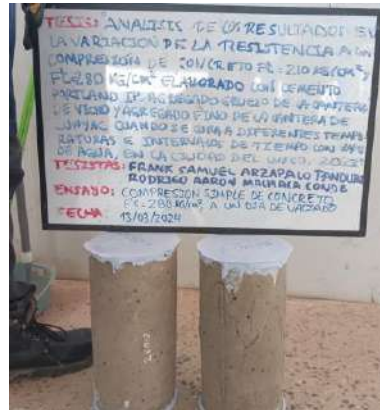 TESIS: ANALISIS DE LOS RESULTADOS EN
LA VARIACION DE LA RESISTENCIA A LA
COMPRESION DE CONCRETO FC=210 KG/CM², Y
FC=280 KG/CM² ELABORADO CON CEMENTO
PORTLAND IP, AGREGADO GRUESO DE LA CANTERA
DE VICHO Y AGREGADO FINO DE LA CANTERA DE
CUANDO SE CURA A DIFERENTES TEMPE
RATURAS E INTERVALOS DE TIEMPO CON
DE AGUA, EN LA CIUDAD DEL CUSCO, 2023
TESISTAS: FRANK SAMUEL ARZAPALO
RODRIGO AARON MACHACA CONDE
ENSAYO: COMPRESION SIMPLE DE CONCRETO
FC=280 KG/CM² A UN DIA DE VACIADO
FECHA: 13/03/2024